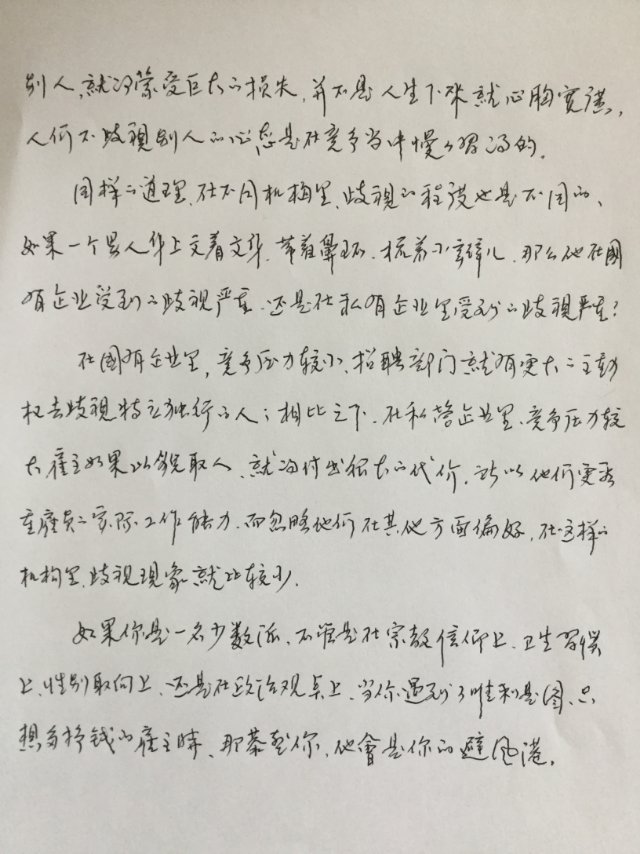 别人,就得蒙受巨大的损失,并不是人生下来就心胸宽广,
人们不歧视别人的心态是在竞争当中慢慢习得的。
同样的道理,在不同机构里,歧视的程度也是不同的、
如果一个男人身上文着文身,带着鼻环,梳着小辫儿,那么他在國
有企业受到的歧视严重,还是在私有企业里受到的歧视严重?
在國有企业里,竞争压力较小,招聘部门就有更大的主动
权去歧视特立独行的人;相比之下,在私营企业里,竞争压力较
大,雇主如果以貌取人,就得付出很大的代价,所以他们更看
重雇员的实际工作能力,而忽略他们在其他方面偏好,在这样的
机构里,歧视现象就比较少.
如果你是一名少数派,不管是在宗教信仰上,卫生習惯
上,性别取向上,还是在政治观点上,当你遇到了唯利是图、只
想多挣钱的雇主時,那恭喜你,他會是你的避风港。